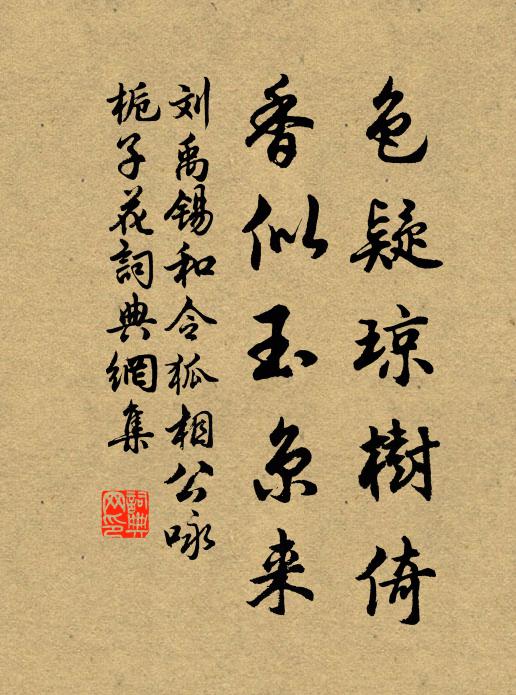 色疑琼樹倚
香似玉京来
刘禹锡和令狐相公咏
栀子花詞典網集
詞典网印